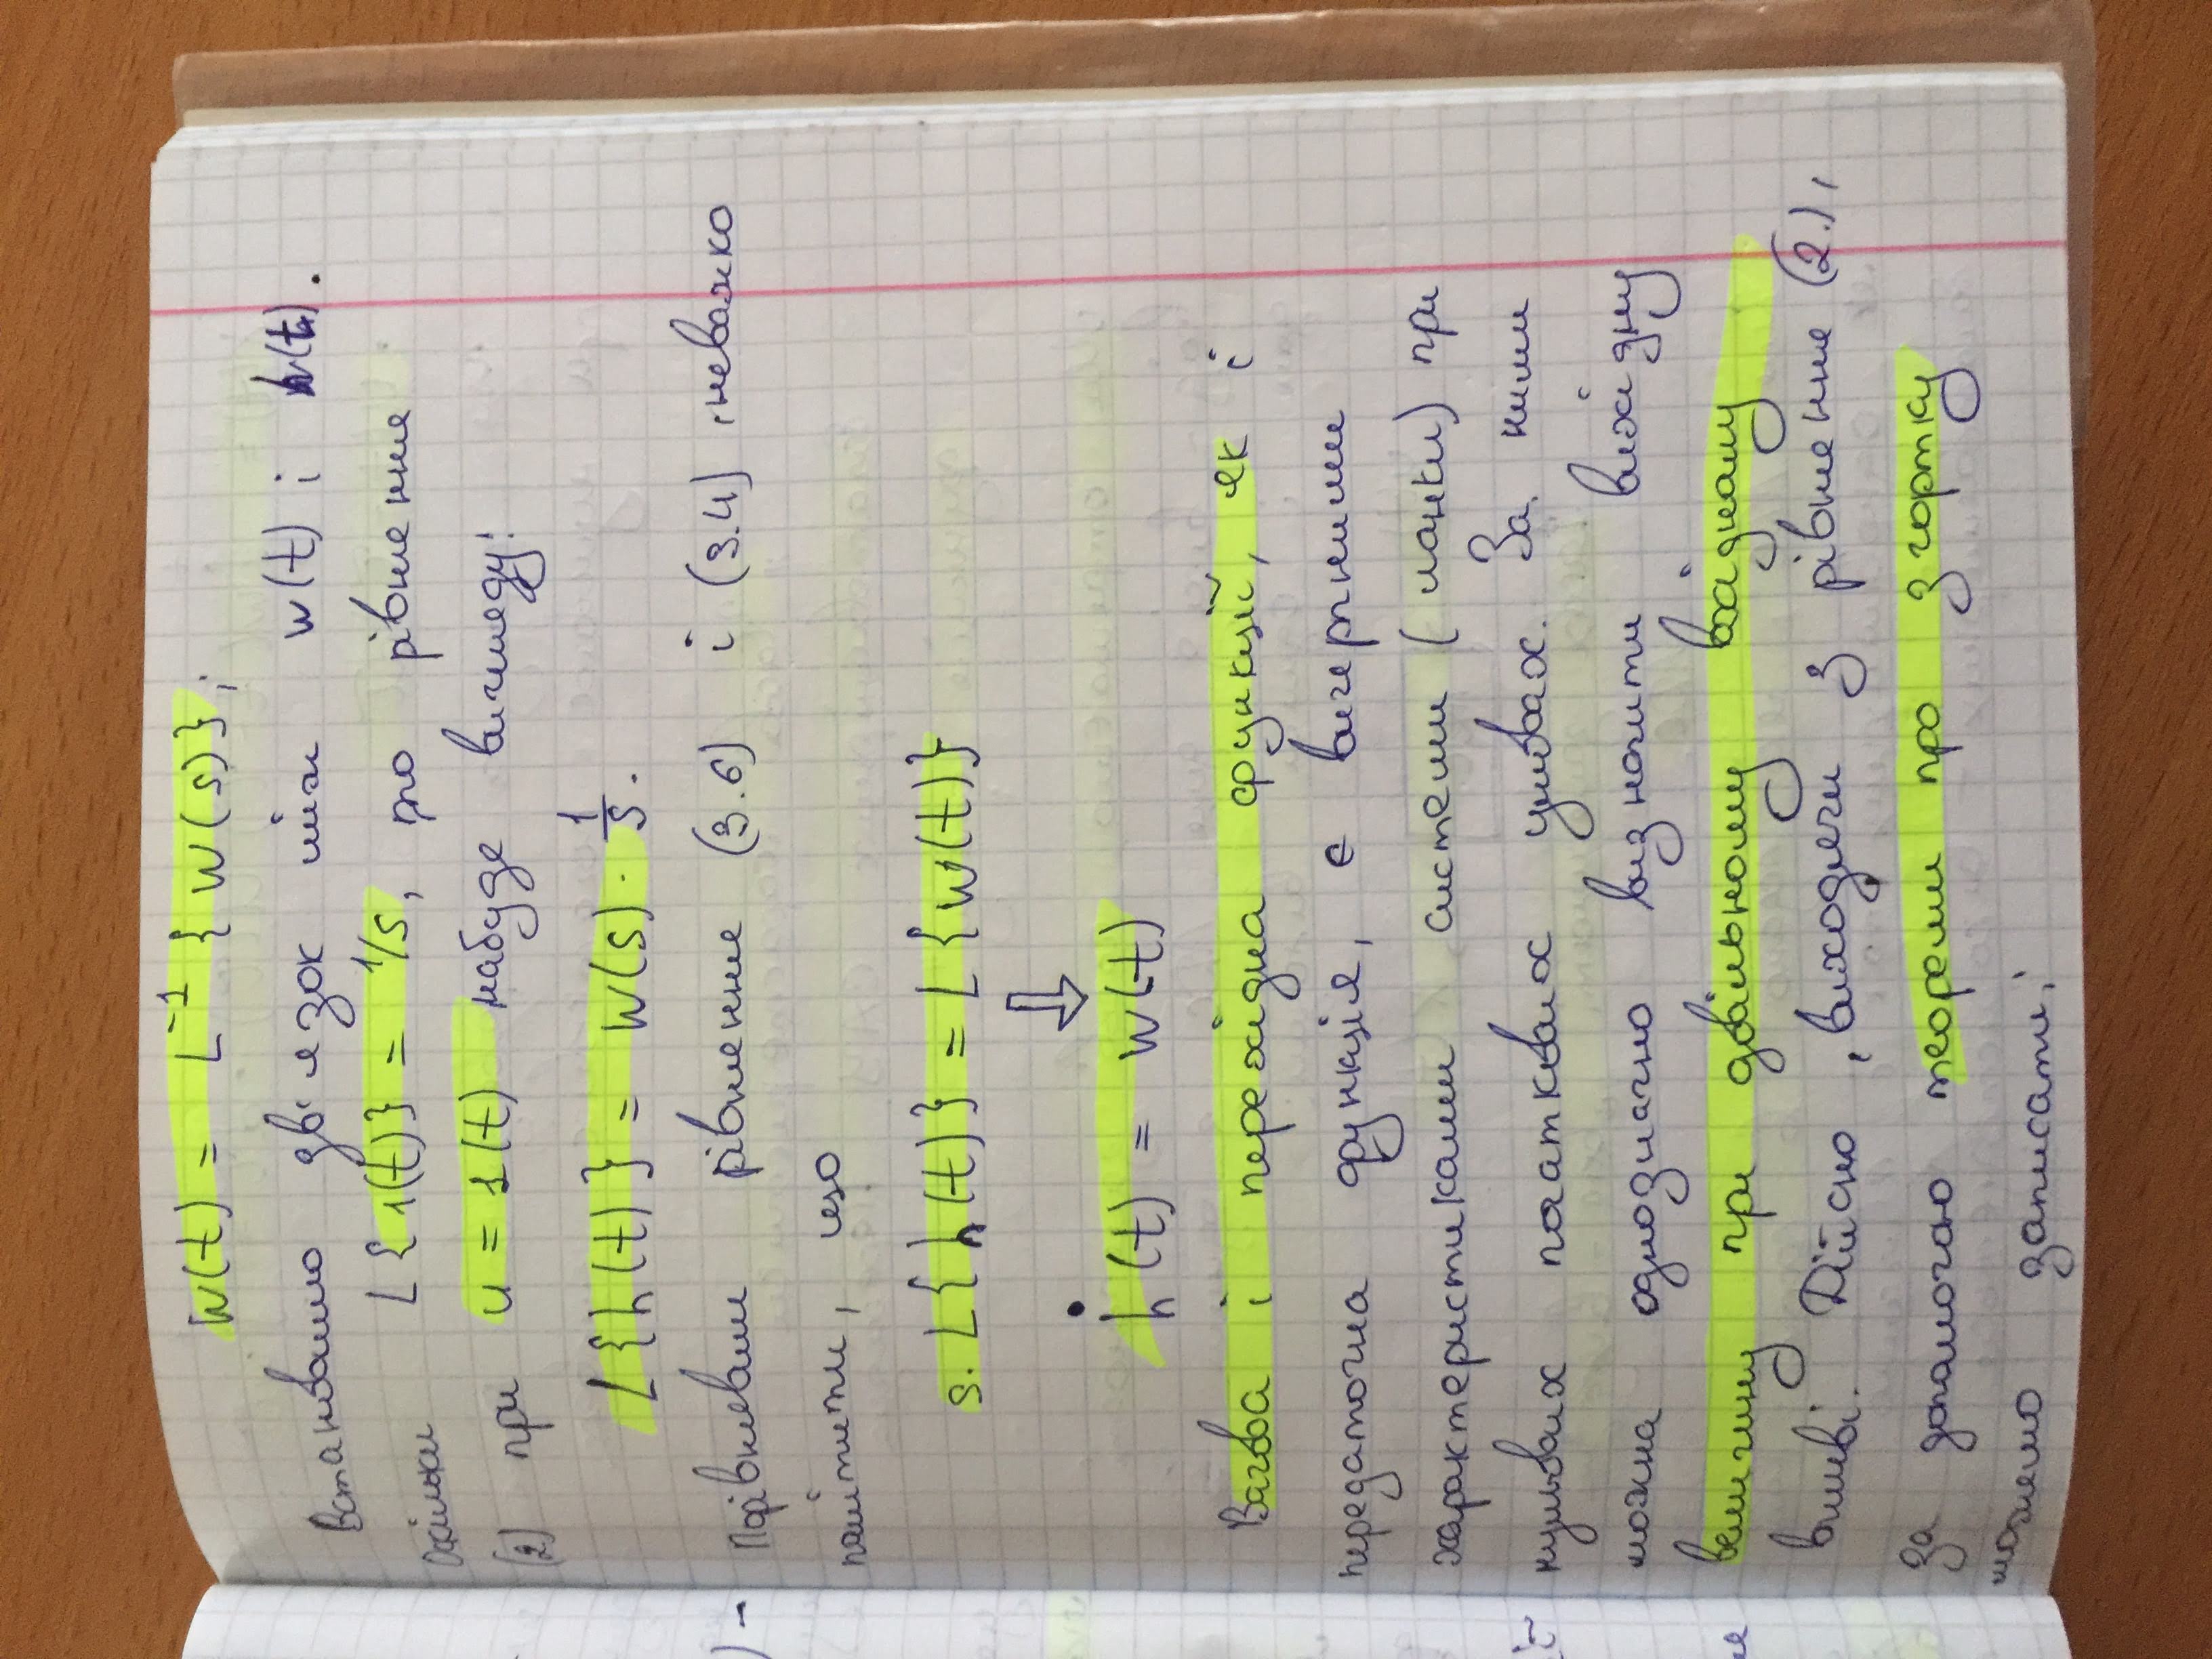 w(t) = L⁻¹ {W(s)};
Встановимо зв'язок між w(t) і h(t).
Оскільки L{1(t)} = 1/s, то рівняння
(2) при u = 1(t) набуде вигляду:
L{h(t)} = W(s) · 1/s.
Порівнявши рівняння (3.6) і (3.4) , неважко
помітити, що
s · L{h(t)} = L{w(t)}
⇓
ḣ(t) = w(t)
Вагова і перехідна функції, як і
передаточна функція, є вичерпними
характеристиками системи (ланки) при
нульових початкових умовах. За ними
можна однозначно визначити вихідну
величину при довільному вхідному
впливі. Дійсно , виходячи з рівняння (2.),
за допомогою теореми про згортку
можемо записати: